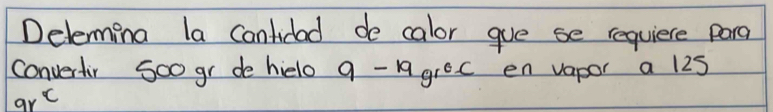 Determina la cantidad de calor que se requiere para
convertir 500 gr de hielo a -19 gr°C en vapor a 125
gr°C